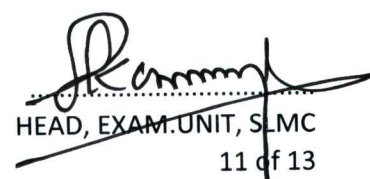 HEAD, EXAM.UNIT, SLMC
11 of 13